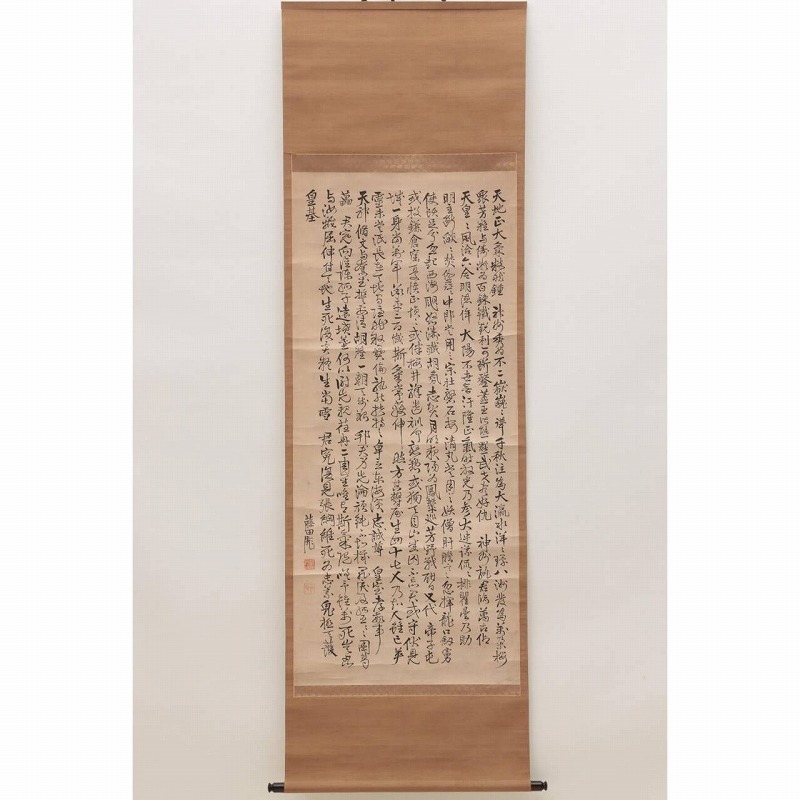 天地正大氣粹然鍾神州秀爲不二嶽巍々聳千秋注爲大瀛水洋々環八洲發爲萬朶櫻
衆芳難与儔凝爲百錬鐵鋭利可斷鍪藎臣皆熊羆武夫盡好仇神州孰君臨萬古仰
天皇皇風洽六合明德侔大陽不世無汙隆正氣時放光乃參大連議侃々排瞿曇乃助
明主斷燄々焚伽藍中郎嘗用之宗社磐石安清丸嘗用之妖僧肝膽寒忽揮龍口劍虜
使頭足分忽起西海颶怒濤殲胡氛志賀月明夜陽爲鳳輦巡芳野戰酣日又代帝子屯
或投鎌倉窟憂憤正愪々或伴櫻井驛遺訓何殷勤或殉天目山幽囚不忘君或守伏見
城一身當萬軍承平二百歳斯氣常獲伸然方其鬱屈生四十七人乃知人雖亡英
靈未嘗泯長在天地間隱然敍彜倫孰能扶持之卓立東海濱忠誠尊皇室孝敬事
天神修文與奮武誓欲清胡塵一朝天歩艱邦君身先淪頑鈍不知機罪戾及孤臣孤臣困葛
藟君冤向誰陳孤子遠墳墓何以謝先親荏苒二周星唯有斯氣隨嗟予雖萬死豈忍
与汝離屈伸付天地生死復奚疑生當雪君冤復見張綱維死爲忠義鬼極天護
皇基
藤田彪